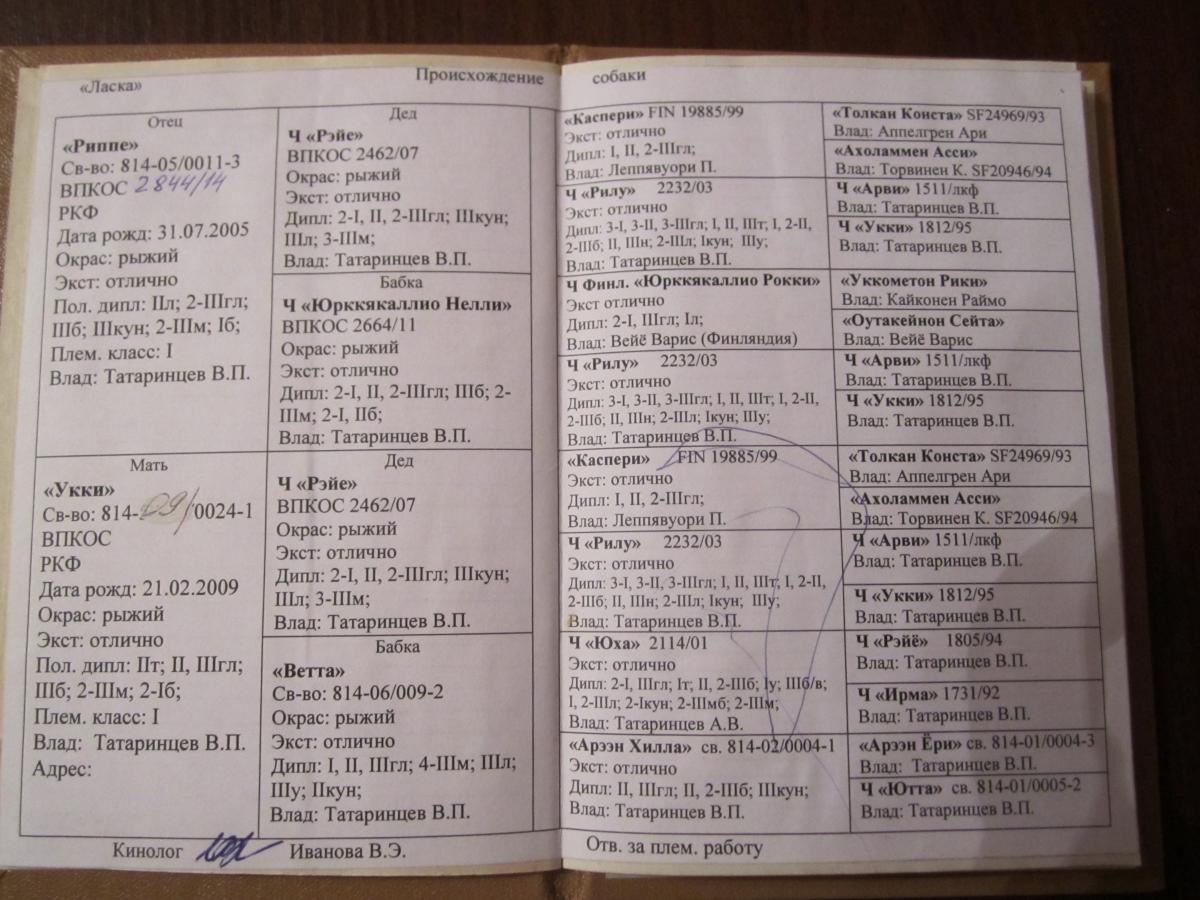 «Ласка»
Происхождение собаки
Отец
«Риппе»
Св-во: 814-05/0011-3
ВПКОС 2844/14
РКФ
Дата рожд: 31.07.2005
Окрас: рыжий
Экст: отлично
Пол. дипл: IIл; 2-IIIгл;
IIIб; IIIкун; 2-IIIм; Iб;
Плем. класс: I
Влад: Татаринцев В.П.
Мать
«Укки»
Св-во: 814-09/0024-1
ВПКОС
РКФ
Дата рожд: 21.02.2009
Окрас: рыжий
Экст: отлично
Пол. дипл: IIт; II, IIIгл;
IIIб; 2-IIIм; 2-Iб;
Плем. класс: I
Влад: Татаринцев В.П.
Адрес:
Дед
Ч «Рэйе»
ВПКОС 2462/07
Окрас: рыжий
Экст: отлично
Дипл: 2-I, II, 2-IIIгл; IIIкун;
IIIл; 3-IIIм;
Влад: Татаринцев В.П.
Бабка
Ч «Юрккякаллио Нелли»
ВПКОС 2664/11
Окрас: рыжий
Экст: отлично
Дипл: 2-I, II, 2-IIIгл; IIIб; 2-
IIIм; 2-I, IIб;
Влад: Татаринцев В.П.
Дед
Ч «Рэйе»
ВПКОС 2462/07
Окрас: рыжий
Экст: отлично
Дипл: 2-I, II, 2-IIIгл; IIIкун;
IIIл; 3-IIIм;
Влад: Татаринцев В.П.
Бабка
«Ветта»
Св-во: 814-06/009-2
Окрас: рыжий
Экст: отлично
Дипл: I, II, IIIгл; 4-IIIм; IIIл;
IIIу; IIкун;
Влад: Татаринцев В.П.
«Каспери» FIN 19885/99
Экст: отлично
Дипл: I, II, 2-IIIгл;
Влад: Леппявуори П.
Ч «Рилу» 2232/03
Экст: отлично
Дипл: 3-I, 3-II, 3-IIIгл; I, II, IIIт; I, 2-II,
2-IIIб; II, IIIн; 2-IIIл; Iкун; IIIу;
Влад: Татаринцев В.П.
Ч Финл. «Юрккякаллио Рокки»
Экст отлично
Дипл: 2-I, IIIгл; Iл;
Влад: Вейё Варис (Финляндия)
Ч «Рилу» 2232/03
Экст: отлично
Дипл: 3-I, 3-II, 3-IIIгл; I, II, IIIт; I, 2-II,
2-IIIб; II, IIIн; 2-IIIл; Iкун; IIIу;
Влад: Татаринцев В.П.
«Каспери» FIN 19885/99
Экст: отлично
Дипл: I, II, 2-IIIгл;
Влад: Леппявуори П.
Ч «Рилу» 2232/03
Экст: отлично
Дипл: 3-I, 3-II, 3-IIIгл; I, II, IIIт; I, 2-II,
2-IIIб; II, IIIн; 2-IIIл; Iкун; IIIу;
Влад: Татаринцев В.П.
Ч «Юха» 2114/01
Экст: отлично
Дипл: 2-I, IIIгл; Iт; II, 2-IIIб; Iу; IIIб/в;
I, 2-IIIл; 2-Iкун; 2-IIIмб; 2-IIIм;
Влад: Татаринцев А.В.
«Арээн Хилла» св. 814-02/0004-1
Экст: отлично
Дипл: II, IIIгл; II, 2-IIIб; IIIкун;
Влад: Татаринцев В.П.
«Толкан Конста» SF24969/93
Влад: Аппелгрен Ари
«Ахоламмен Асси»
Влад: Торвинен К. SF20946/94
Ч «Арви» 1511/лкф
Влад: Татаринцев В.П.
Ч «Укки» 1812/95
Влад: Татаринцев В.П.
«Уккометон Рики»
Влад: Кайконен Раймо
«Оутакейнон Сейта»
Влад: Вейё Варис
Ч «Арви» 1511/лкф
Влад: Татаринцев В.П.
Ч «Укки» 1812/95
Влад: Татаринцев В.П.
«Толкан Конста» SF24969/93
Влад: Аппелгрен Ари
«Ахоламмен Асси»
Влад: Торвинен К. SF20946/94
Ч «Арви» 1511/лкф
Влад: Татаринцев В.П.
Ч «Укки» 1812/95
Влад: Татаринцев В.П.
Ч «Рэйё» 1805/94
Влад: Татаринцев В.П.
Ч «Ирма» 1731/92
Влад: Татаринцев В.П.
«Арээн Ёри» св. 814-01/0004-3
Влад: Татаринцев В.П.
Ч «Ютта» св. 814-01/0005-2
Влад: Татаринцев В.П.
Кинолог Иванова В.Э.
Отв. за плем. работу